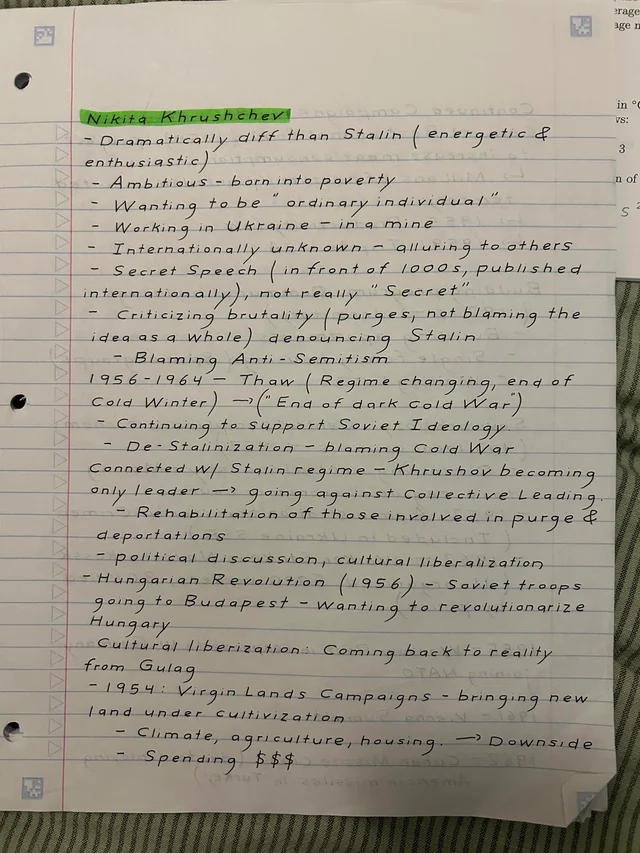 Nikita Khrushchev
- Dramatically diff than Stalin (energetic &
enthusiastic)
- Ambitious - born into poverty
- Wanting to be "ordinary individual"
- Working in Ukraine - in a mine
- Internationally unknown - alluring to others
- Secret Speech (in front of 1000s, published
internationally), not really "Secret"
- Criticizing brutality (purges, not blaming the
idea as a whole) denouncing Stalin
- Blaming Anti-Semitism
1956-1964 - Thaw (Regime changing, end of
Cold Winter) → ("End of dark Cold War")
- Continuing to support Soviet Ideology.
- De-Stalinization - blaming Cold War
Connected w/ Stalin regime - Khrushov becoming
only leader → going against Collective Leading.
- Rehabilitation of those involved in purge &
deportations
- political discussion, cultural liberalization
- Hungarian Revolution (1956) - Soviet troops
going to Budapest - Wanting to revolutionarize
Hungary
Cultural liberization: Coming back to reality
from Gulag
- 1954: Virgin Lands Campaigns - bringing new
land under cultivization
- Climate, agriculture, housing. → Downside
- Spending $$$
in °
vs:
3
n of
S 2